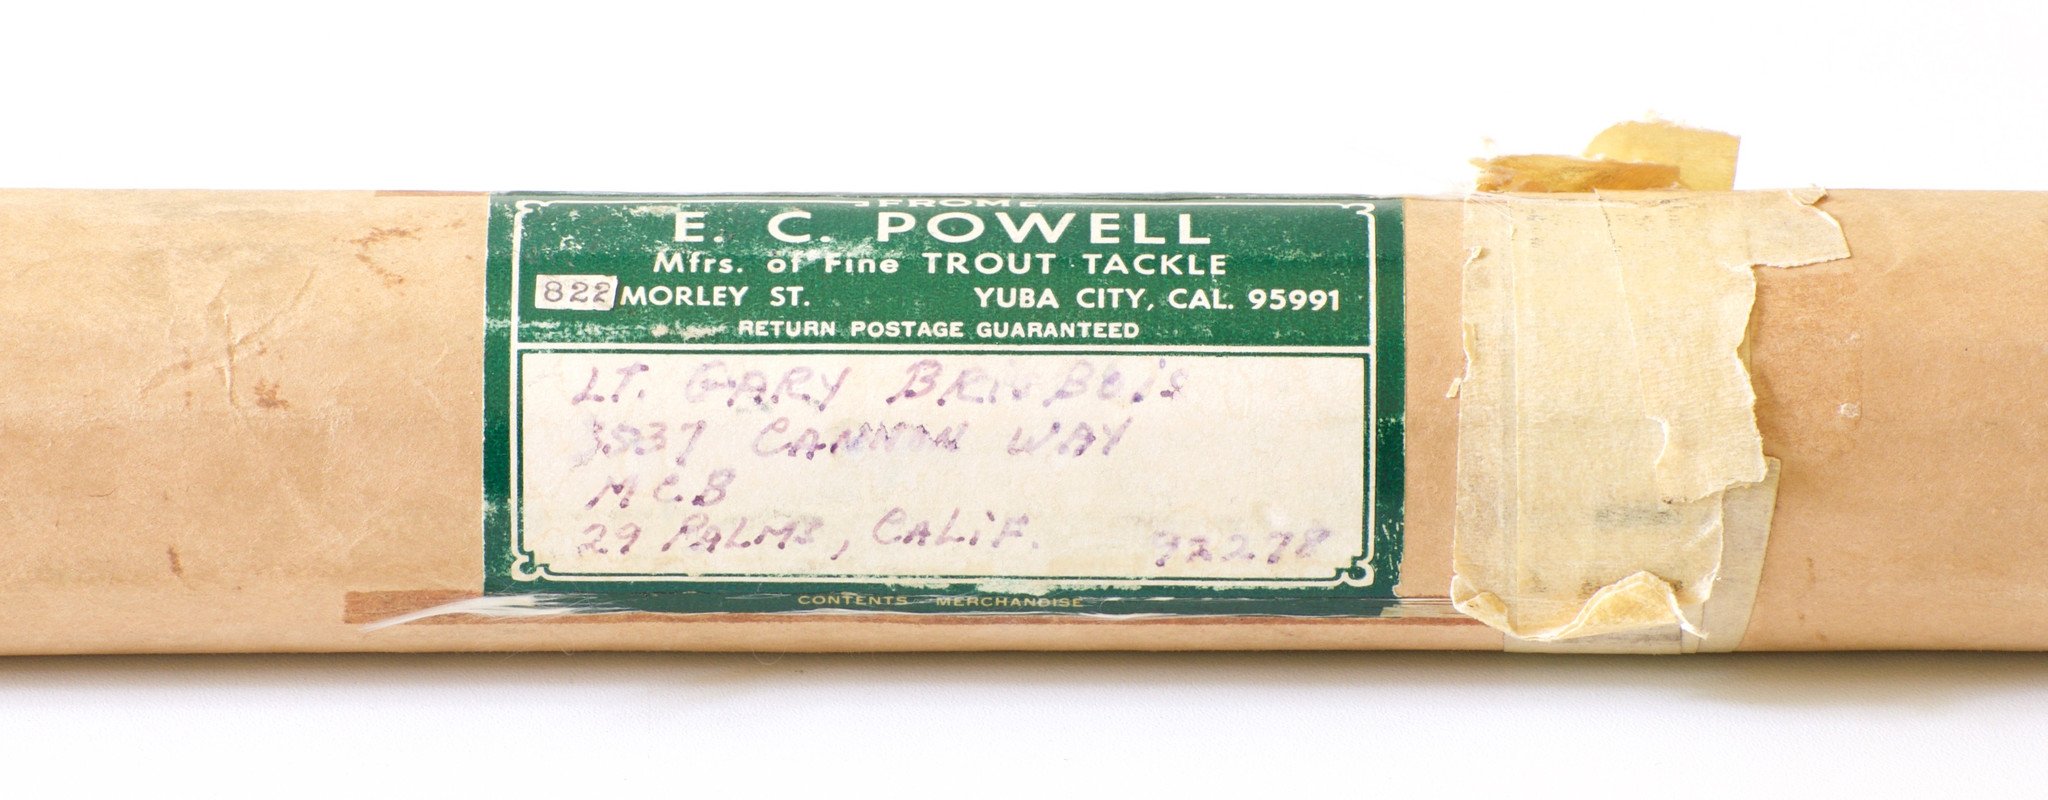 FROM
E. C. POWELL
Mfrs. of Fine TROUT TACKLE
822 MORLEY ST. YUBA CITY, CAL. 95991
RETURN POSTAGE GUARANTEED
LT. GARY
3537 CANNON WAY
MCB
29 PALMS, CALIF. 92278
CONTENTS MERCHANDISE